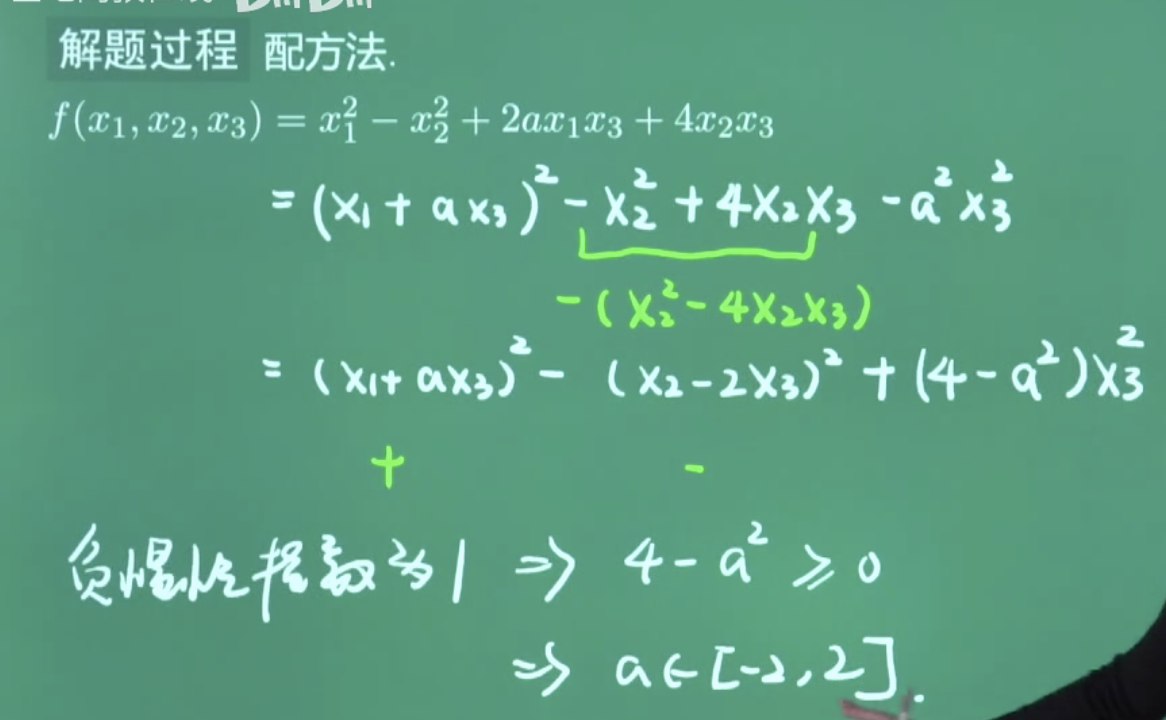 解题过程 配方法.
f(x₁, x₂, x₃) = x₁² − x₂² + 2ax₁x₃ + 4x₂x₃
= (x₁ + ax₃)² − x₂² + 4x₂x₃ − a²x₃²
−(x₂² − 4x₂x₃)
= (x₁ + ax₃)² − (x₂ − 2x₃)² + (4 − a²)x₃²
+ −
负惯性指数为1 ⇒ 4 − a² ≥ 0
⇒ a ∈ [−2, 2].